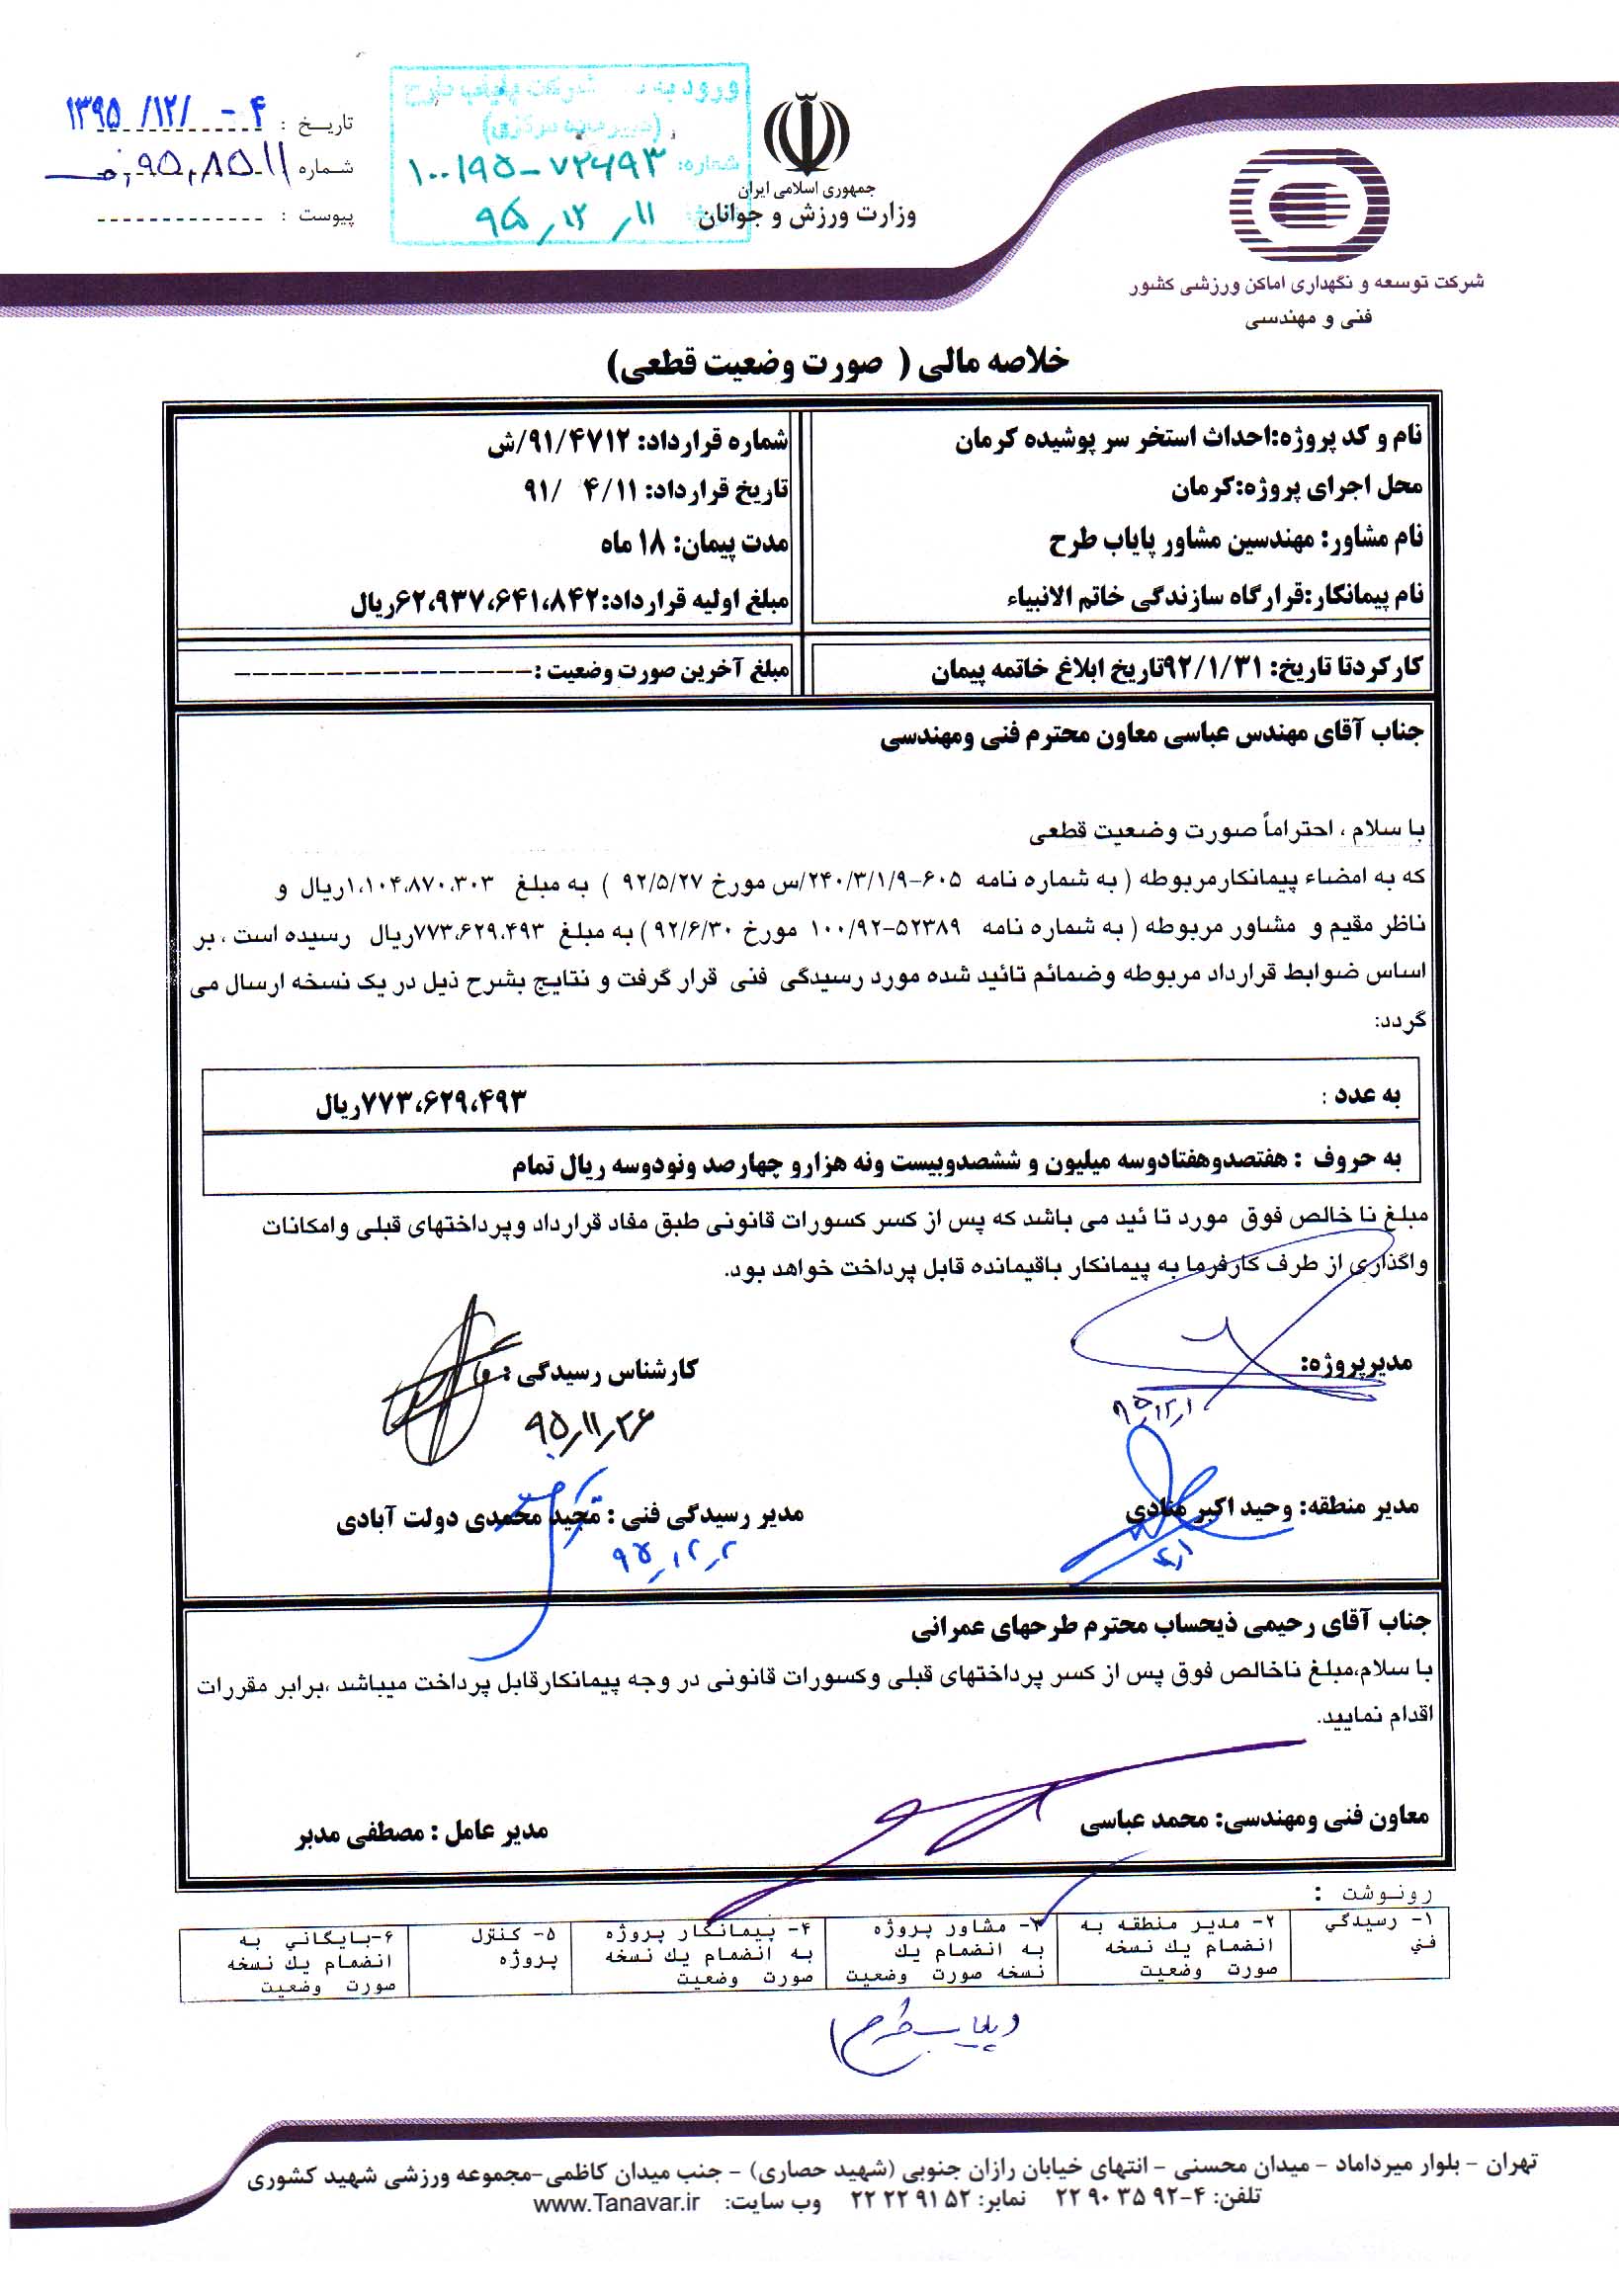 تاریخ : ۱۳۹۵/۱۲/۰۴
شماره
پیوست : - - - - - - - - - - - - -
(دبیرخانه مرکزی)
شماره: ۱۰۰/۹۵-۷۲۶۹۳
۹۵/۱۲/۱۱
جمهوری اسلامی ایران
وزارت ورزش و جوانان
شرکت توسعه و نگهداری اماکن ورزشی کشور
فنی و مهندسی
خلاصه مالی ( صورت وضعیت قطعی)
نام و کد پروژه:احداث استخر سر پوشیده کرمان
محل اجرای پروژه:کرمان
نام مشاور: مهندسین مشاور پایاب طرح
نام پیمانکار:قرارگاه سازندگی خاتم الانبیاء
شماره قرارداد: ۹۱/۴۷۱۲/ش
تاریخ قرارداد: ۹۱/ ۴/۱۱
مدت پیمان: ۱۸ ماه
مبلغ اولیه قرارداد:۶۲،۹۳۷،۶۴۱،۸۴۲ریال
کارکردتا تاریخ: ۹۲/۱/۳۱تاریخ ابلاغ خاتمه پیمان
مبلغ آخرین صورت وضعیت :----------------
جناب آقای مهندس عباسی معاون محترم فنی ومهندسی
با سلام ، احتراماً صورت وضعیت قطعی
که به امضاء پیمانکارمربوطه ( به شماره نامه ۶۰۵-۲۴۰/۳/۱/۹/س مورخ ۹۲/۵/۲۷ ) به مبلغ ۱،۱۰۴،۸۷۰،۳۰۳ریال و
ناظر مقیم و مشاور مربوطه ( به شماره نامه ۵۲۳۸۹-۱۰۰/۹۲ مورخ ۹۲/۶/۳۰ ) به مبلغ ۷۷۳،۶۲۹،۴۹۳ریال رسیده است ، بر
اساس ضوابط قرارداد مربوطه وضمائم تائید شده مورد رسیدگی فنی قرار گرفت و نتایج بشرح ذیل در یک نسخه ارسال می
گردد:
به عدد : ۷۷۳،۶۲۹،۴۹۳ریال
به حروف : هفتصدوهفتادوسه میلیون و ششصدوبیست ونه هزارو چهارصد ونودوسه ریال تمام
مبلغ نا خالص فوق مورد تا ئید می باشد که پس از کسر کسورات قانونی طبق مفاد قرارداد وپرداختهای قبلی وامکانات
واگذاری از طرف کارفرما به پیمانکار باقیمانده قابل پرداخت خواهد بود.
مدیرپروژه:
۹۵/۱۲/۱
کارشناس رسیدگی :
۹۵/۱۱/۲۶
مدیر منطقه: وحید اکبر منادی
مدیر رسیدگی فنی : مجید محمدی دولت آبادی
۹۵/۱۲/۲
جناب آقای رحیمی ذیحساب محترم طرحهای عمرانی
با سلام،مبلغ ناخالص فوق پس از کسر پرداختهای قبلی وکسورات قانونی در وجه پیمانکارقابل پرداخت میباشد ،برابر مقررات
اقدام نمایید.
معاون فنی ومهندسی: محمد عباسی
مدیر عامل : مصطفی مدبر
رونوشت :
۱- رسیدگي
فني
۲- مدیر منطقه به
انضمام یك نسخه
صورت وضعیت
۳- مشاور پروژه
به انضمام یك
نسخه صورت وضعیت
۴- پیمانکار پروژه
به انضمام یك نسخه
صورت وضعیت
۵- کنترل
پروژه
۶-بایگاني به
انضمام یك نسخه
صورت وضعیت
پایاب طرح
تهران - بلوار میرداماد - میدان محسنی - انتهای خیابان رازان جنوبی (شهید حصاری) - جنب میدان کاظمی-مجموعه ورزشی شهید کشوری
تلفن: ۴-۹۲ ۳۵ ۹۰ ۲۲ نمابر: ۵۲ ۹۱ ۲۲ ۲۲ وب سایت: www.Tanavar.ir